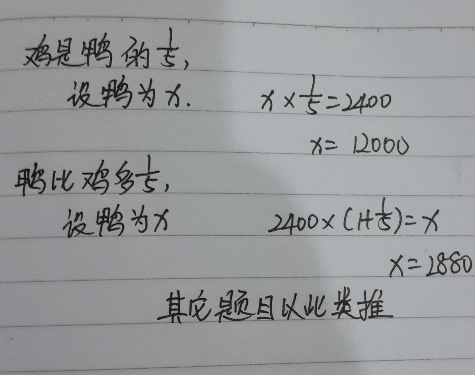 鸡是鸭的1/5,
设鸭为x. x×1/5=2400
x=12000
鸭比鸡多1/5,
设鸭为x 2400×(1+1/5)=x
x=2880
其它题目以此类推